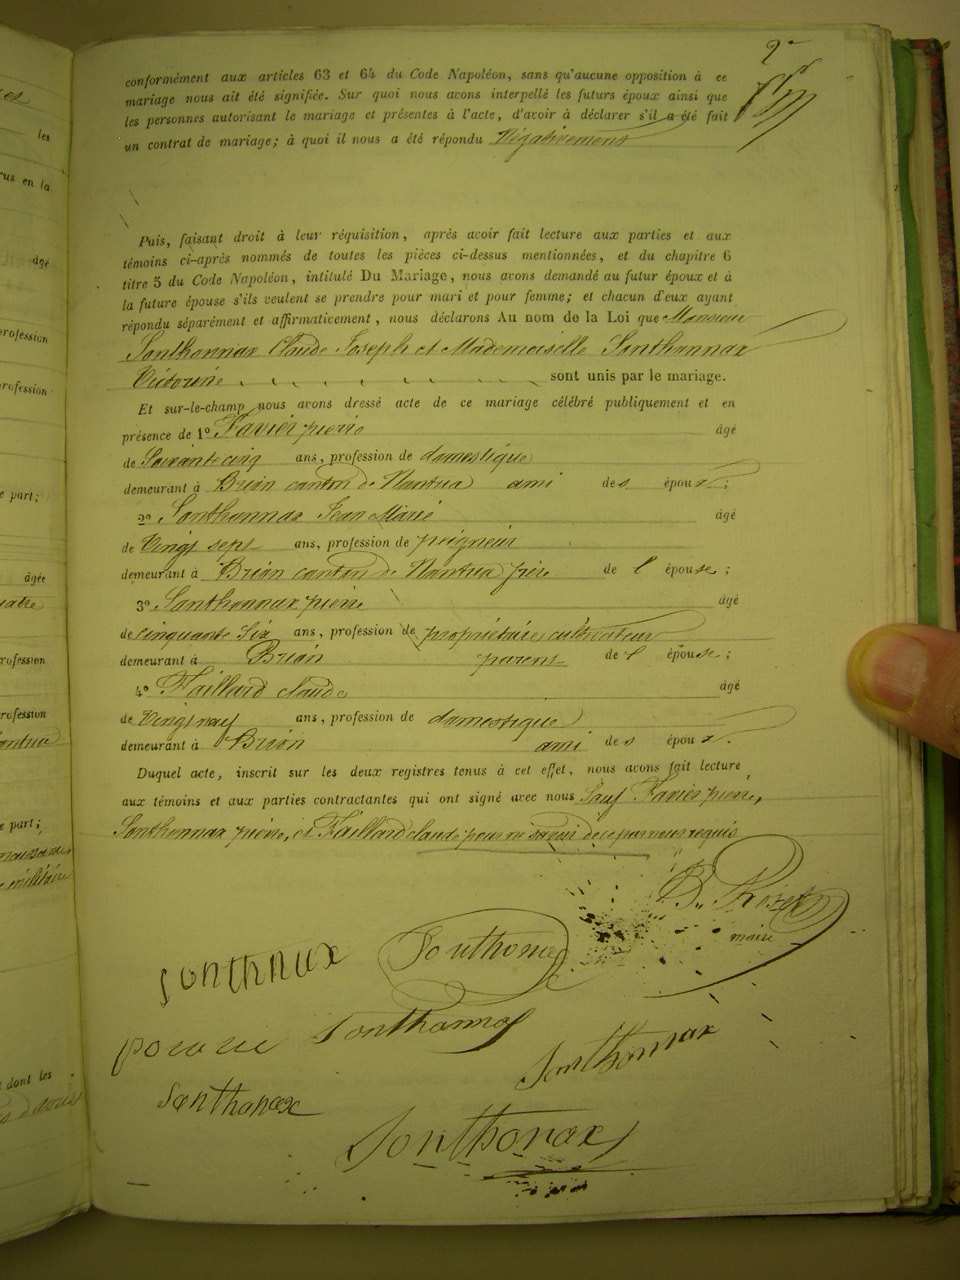 2
conformément aux articles 63 et 64 du Code Napoléon, sans qu'aucune opposition à ce
mariage nous ait été signifiée. Sur quoi nous avons interpellé les futurs époux ainsi que
les personnes autorisant le mariage et présentes à l'acte, d'avoir à déclarer s'il a été fait
un contrat de mariage; à quoi il nous a été répondu Négativement
Puis, faisant droit à leur réquisition, après avoir fait lecture aux parties et aux
témoins ci-après nommés de toutes les pièces ci-dessus mentionnées, et du chapitre 6
titre 5 du Code Napoléon, intitulé Du Mariage, nous avons demandé au futur époux et à
la future épouse s'ils veulent se prendre pour mari et pour femme; et chacun d'eux ayant
répondu séparément et affirmativement, nous déclarons Au nom de la Loi que Monsieur
Sonthonnax Claude Joseph et Mademoiselle Sonthonnax
Victorine sont unis par le mariage.
Et sur-le-champ nous avons dressé acte de ce mariage célébré publiquement et en
présence de 1º Favier pierre âgé
de Soixante cinq ans, profession de domestique
demeurant à Brion canton de Nantua ami des époux;
2º Sonthonnax Jean Marie âgé
de Vingt sept ans, profession de peigneur
demeurant à Brion canton de Nantua frère de l épouse;
3º Sonthonnax pierre âgé
de cinquante Six ans, profession de propriétaire cultivateur
demeurant à Brion parent de l épouse;
4º Faillard claude âgé
de Vingt neuf ans, profession de domestique
demeurant à Brion ami des époux.
Duquel acte, inscrit sur les deux registres tenus à cet effet, nous avons fait lecture
aux témoins et aux parties contractantes qui ont signé avec nous Sauf Favier pierre,
Sonthonnax pierre, et Faillard claude pour ne savoir de ce par nous requis
B. Roset
maire
sonthnax Sonthonax
Sonthonnax
Sonthonax
Santhonax
Sonthonax